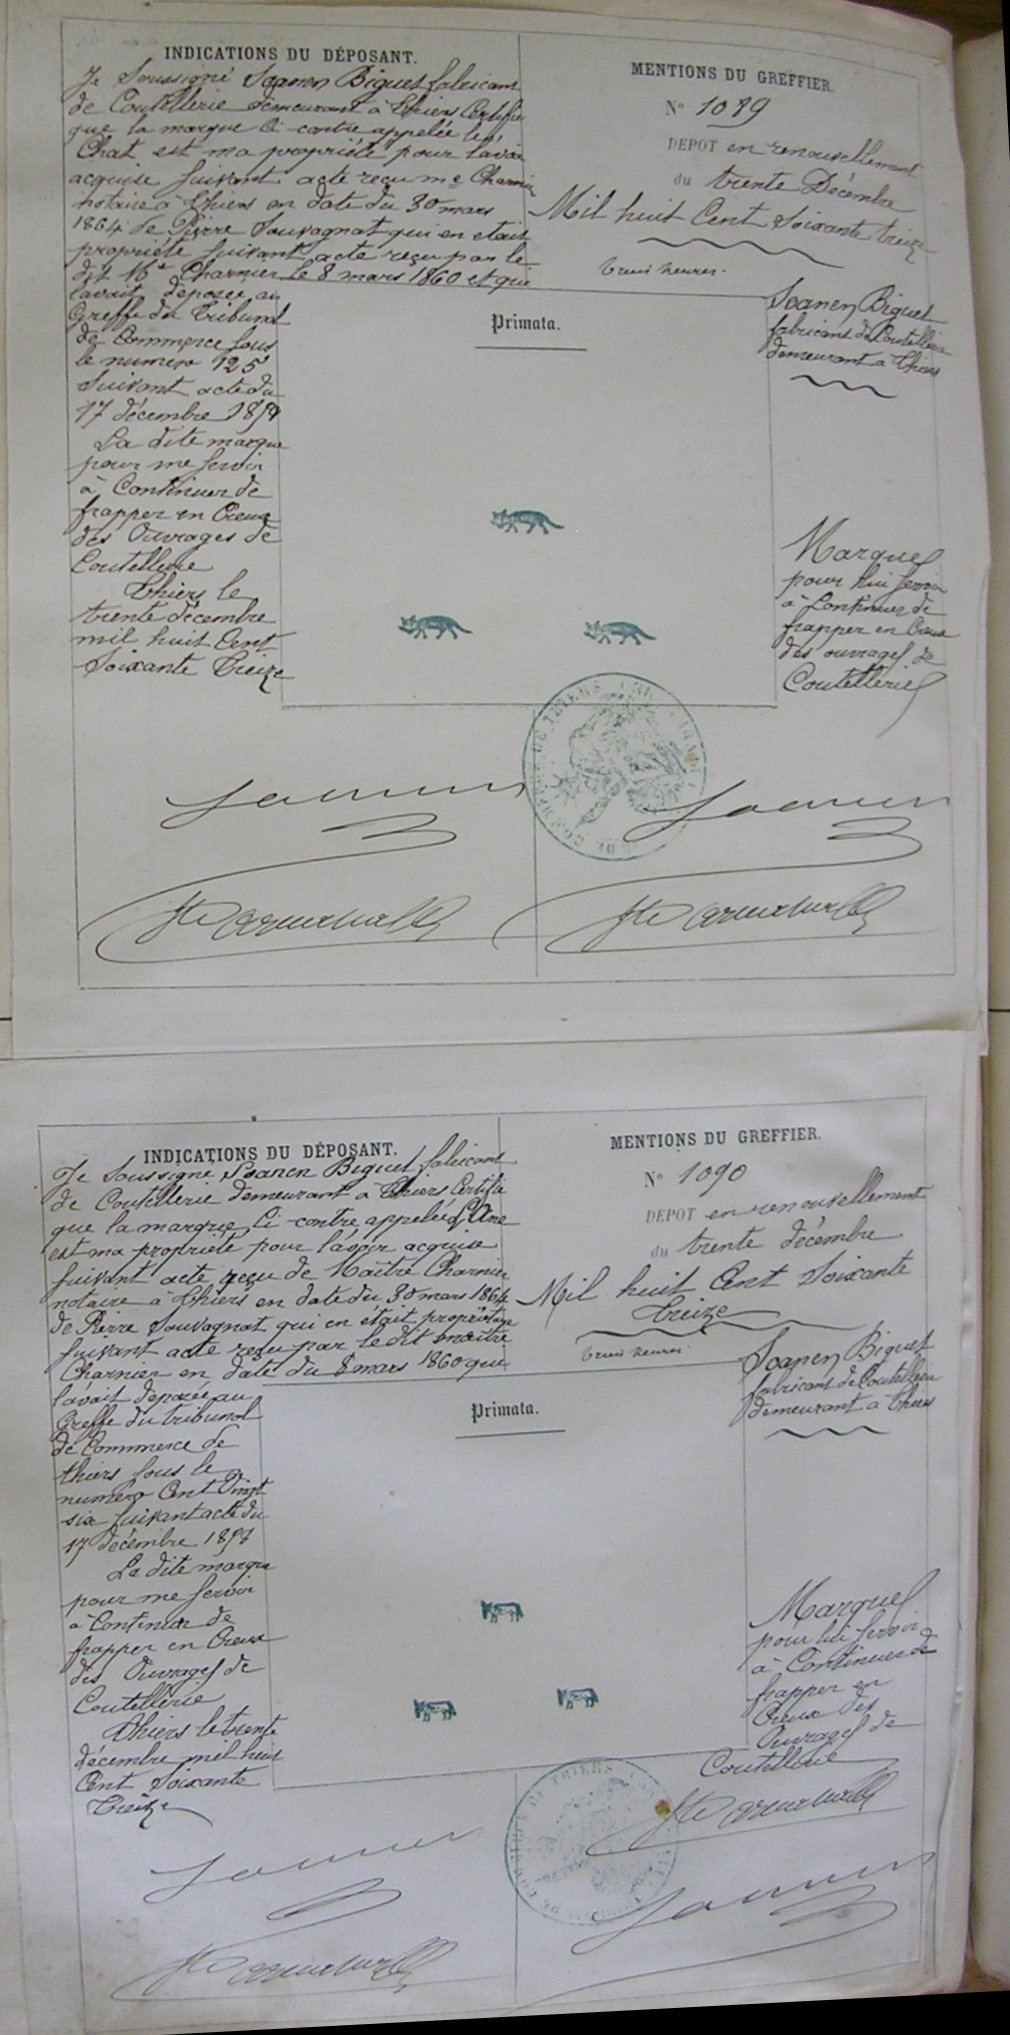 INDICATIONS DU DÉPOSANT.
Je Soussigné Soanen Biguet fabricant
de Coutellerie demeurant à Thiers Certifie
que la marque Ci-contre appelée le
Chat est ma propriété pour l'avoir
acquise Suivant acte reçu me Charnier
notaire à Thiers en date du 30 mars
1864 de Pierre Sauvagnat qui en etait
propriéte suivant acte reçu par le
dit Me Charnier le 8 mars 1860 et qui
l'avait déposée au
Greffe du Tribunal
de Commerce sous
le numero 125
Suivant acte du
17 décembre
La dite marque
pour me servir
à Continuer de
frapper en Creux
des Ouvrages de
Coutellerie
Thiers le
trente décembre
mil huit Cent
Soixante Treize
MENTIONS DU GREFFIER.
N° 1089
DEPOT en renouvellement
du trente Décembre
Mil huit Cent Soixante treize
trois heures.
Primata.
Soanen Biguet
fabricant de Coutellerie
demeurant à Thiers
Marque
pour lui servir
à Continuer de
frapper en Creux
des ouvrages de
Coutellerie
Soanen
Soanen
INDICATIONS DU DÉPOSANT.
Je Soussigné Soanen Biguet fabricant
de Coutellerie demeurant à Thiers Certifie
que la marque Ci-contre appelée L'Ane
est ma propriété pour l'avoir acquise
suivant acte reçu de Maître Charnier
notaire à Thiers en date du 30 mars 1864
de Pierre Sauvagnat qui en était propriétaire
suivant acte reçu par le dit maître
Charnier en date du 8 mars 1860 qui
l'avait déposée au
Greffe du tribunal
de Commerce de
thiers sous le
numéro Cent Vingt
six suivant acte du
17 décembre
La dite marque
pour me servir
à Continuer de
frapper en Creux
des Ouvrages de
Coutellerie
Thiers le trente
décembre mil huit
Cent Soixante
Treize
MENTIONS DU GREFFIER.
N° 1090
DEPOT en renouvellement
du trente décembre
Mil huit Cent Soixante
Treize
trois heures.
Primata.
Soanen Biguet
fabricant de Coutellerie
demeurant à Thiers
Marque
pour lui servir
à Continuer de
frapper en
Creux des
Ouvrages de
Coutellerie
Soanen
Soanen